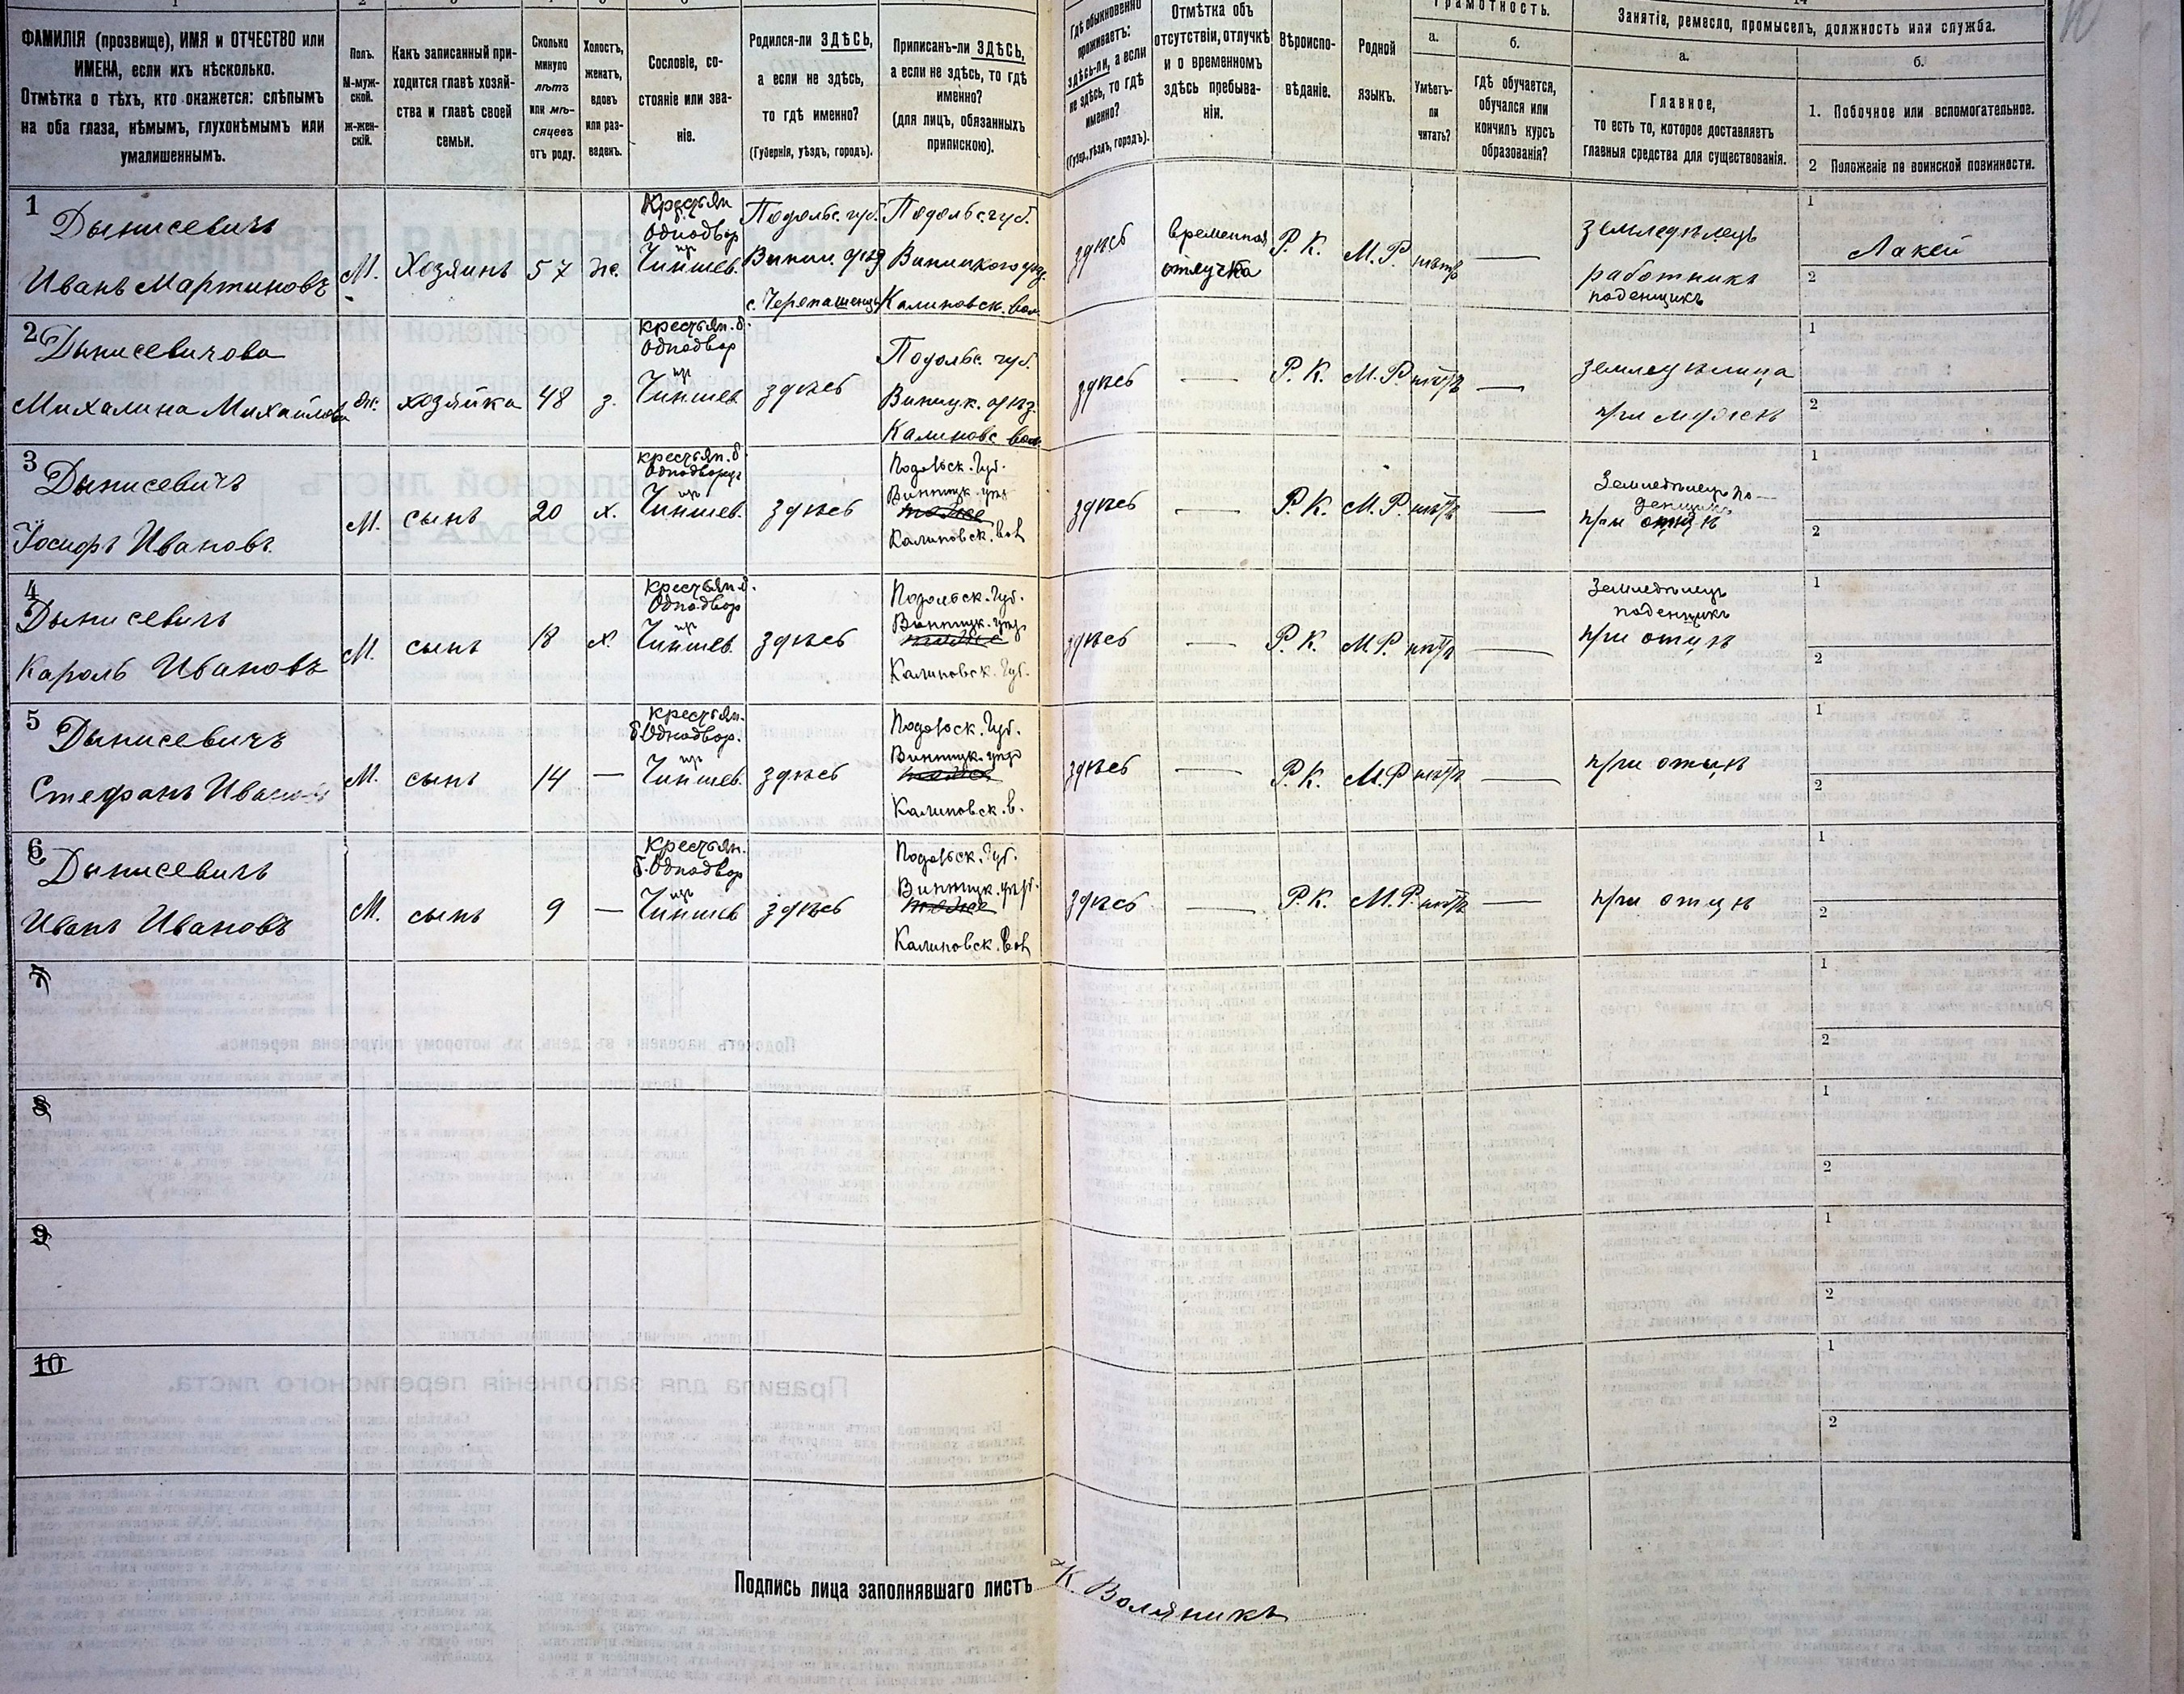 ФАМИЛІЯ (прозвище), ИМЯ и ОТЧЕСТВО или
ИМЕНА, если ихъ нѣсколько.
Отмѣтка о тѣхъ, кто окажется: слѣпымъ
на оба глаза, нѣмымъ, глухонѣмымъ или
умалишеннымъ.
Полъ.
М-муж-
ской.
Ж-жен-
скій.
Какъ записанный при-
ходится главѣ хозяй-
ства и главѣ своей
семьи.
Сколько
минуло
лѣтъ
или мѣ-
сяцевъ
отъ роду.
Холостъ,
женатъ,
вдовъ
или раз-
веденъ.
Сословіе, со-
стояніе или зва-
ніе.
Родился-ли ЗДѢСЬ,
а если не здѣсь,
то гдѣ именно?
(Губернія, уѣздъ, городъ).
Приписанъ-ли ЗДѢСЬ,
а если не здѣсь, то гдѣ
именно?
(для лицъ, обязанныхъ
припискою).
Гдѣ обыкновенно
проживаетъ:
здѣсь-ли, а если
не здѣсь, то гдѣ
именно?
(Губер., уѣздъ, городъ).
Отмѣтка объ
отсутствіи, отлучкѣ
и о временномъ
здѣсь пребыва-
ніи.
Вѣроиспо-
вѣданіе.
Родной
языкъ.
Грамотность.
а.
Умѣетъ-
ли
читать?
б.
Гдѣ обучается,
обучался или
кончилъ курсъ
образованія?
14
Занятіе, ремесло, промыселъ, должность или служба.
а.
Главное,
то есть то, которое доставляетъ
главныя средства для существованія.
б.
1. Побочное или вспомогательное.
2 Положеніе по воинской повинности.
1
Дынисевичъ
Иванъ Мартиновъ
М.
Хозяинъ
57
ж.
Крестьян
б.
Однодвор
Чиншев.
Подольс. губ.
Винн. уѣзд
с. Черепашенцы
Подольс. губ.
Винницкого уѣз.
Калиновск. вол.
здѣсь
временная
отлучка
Р. К.
М. Р.
нѣтъ
—
земледѣлецъ
работникъ
поденщикъ
1
Лакей
2
2
Дынисевичова
Михалина Михайлова
ж.
хозяйка
48
з.
крестьян. б.
Однодвор
Чиншев
здѣсь
Подольс. губ.
Винницк. уѣз.
Калиновс. вол.
здѣсь
—
Р. К.
М. Р.
нѣтъ
—
земледѣлица
при мужѣ
1
2
3
Дынисевичъ
Іосифъ Ивановъ
М.
сынъ
20
х.
крестьян. б.
Однодворцъ
Чиншев.
здѣсь
Подольск. Губ.
Винницк. уѣз.
тоже
Калиновск. вол
здѣсь
—
Р. К.
М. Р.
нѣтъ
—
Земледѣлецъ по-
денщикъ
при отцѣ
1
2
4
Дынисевичъ
Кароль Ивановъ
М.
сынъ
18
х.
крестьян. б.
Однодвор
Чиншев.
здѣсь
Подольск. Губ.
Винницк. уѣз.
тоже
Калиновск. Губ.
здѣсь
—
Р. К.
М Р.
нѣтъ
—
Земледѣлецъ
поденщикъ
при отцѣ
1
2
5
Дынисевичъ
Стефанъ Ивановъ
М.
сынъ
14
—
крестьян.
б. Однодвор.
Чиншев.
здѣсь
Подольск. Губ.
Винницк. уѣзд
тоже
Калиновск. в.
здѣсь
—
Р. К.
М. Р
нѣтъ
—
при отцѣ
1
2
6
Дынисевичъ
Иванъ Ивановъ
М.
сынъ
9
—
Крестьян.
б. Однодвор
Чиншев
здѣсь
Подольск. Губ.
Винницк. уѣз.
тоже
Калиновск. вол
здѣсь
—
Р. К.
М. Р.
нѣтъ
—
при отцѣ
1
2
7
1
2
8
1
2
9
1
2
10
1
2
Подпись лица заполнявшаго листъ К. Воляникъ